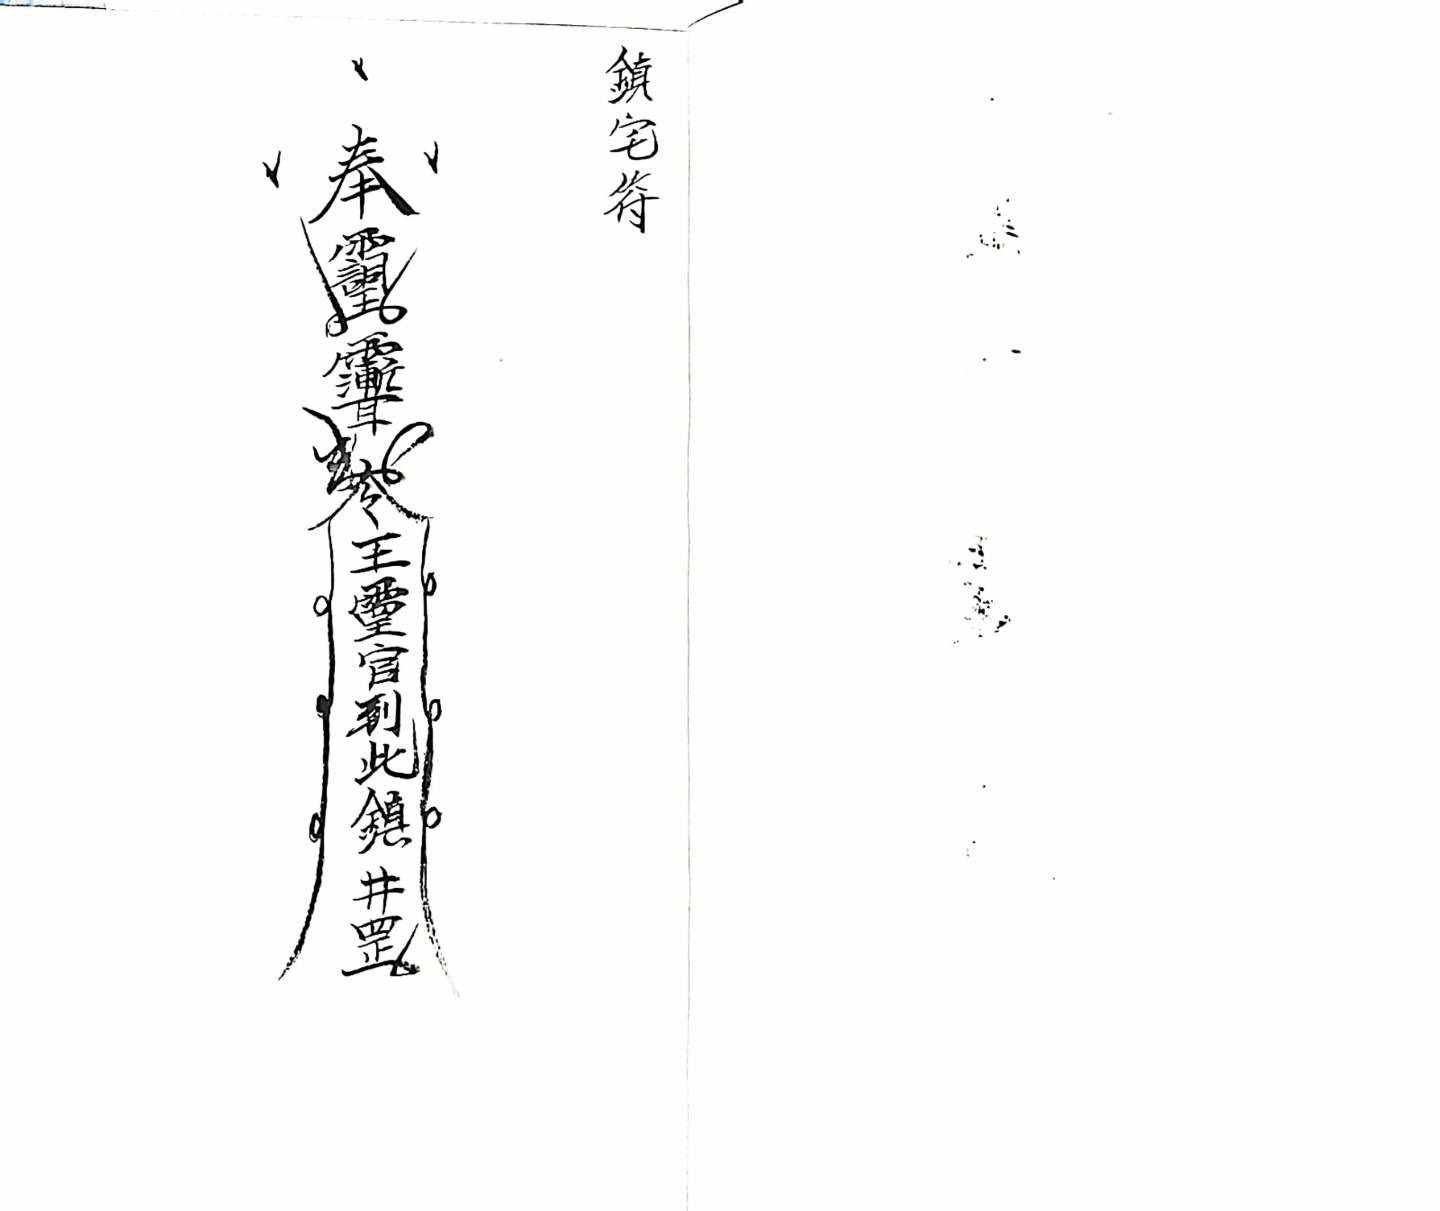 鎮宅符
奉
令
王靈官到此鎮井罡